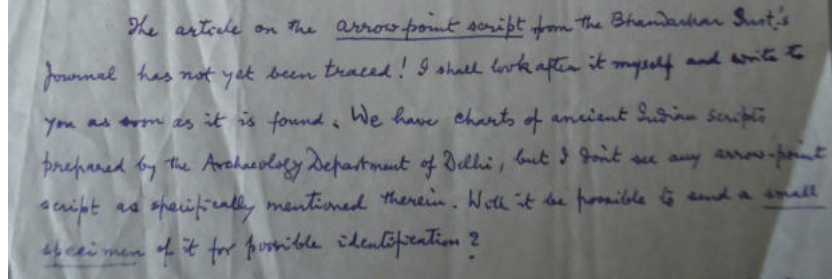 The article on the arrow-point script from the Bhandarkar Inst.'s
Journal has not yet been traced! I shall look after it myself and write to
you as soon as it is found. We have charts of ancient Indian scripts
prepared by the Archaeology Department of Delhi, but I don't see any arrow-point
script as specifically mentioned therein. Will it be possible to send a small
specimen of it for possible identification?